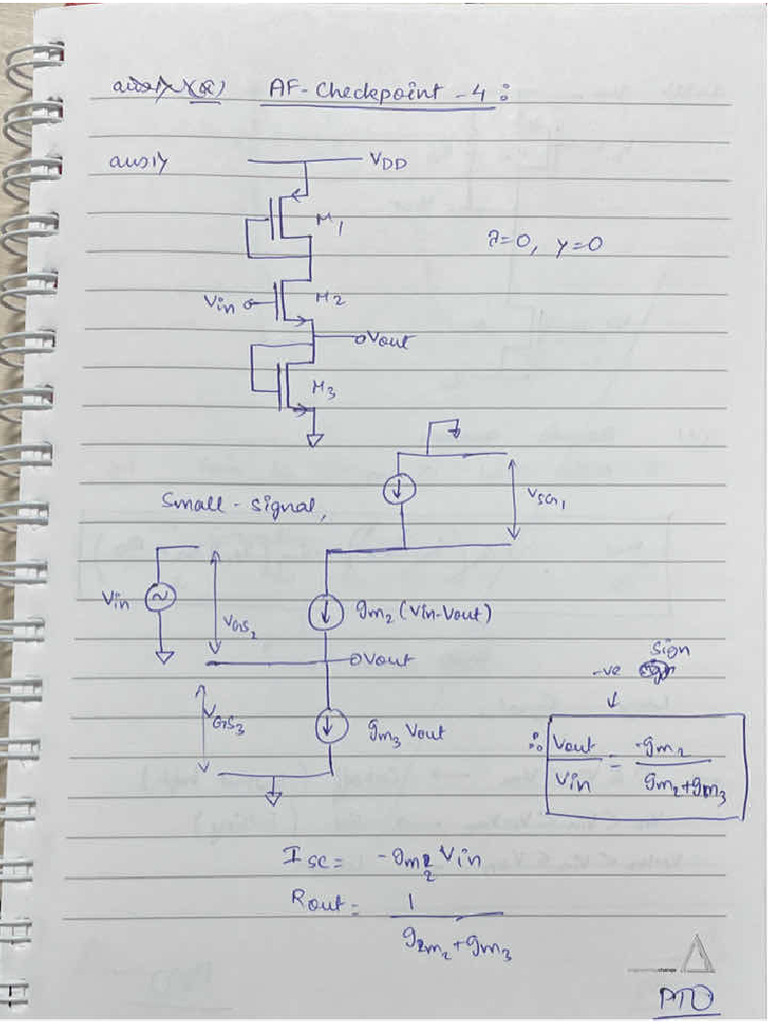 AF-Checkpoint-4:
VDD
M1
λ=0, γ=0
Vin M2
Vout
M3
Small-signal,
VSG1
Vin VGS2 gm2(Vin-Vout)
Vout
Sign
-ve
VGS3 gm3 Vout
∴ Vout/Vin = -gm2/(gm2+gm3)
Isc= -gm2 Vin
Rout= 1/(gm2+gm3)
PTO